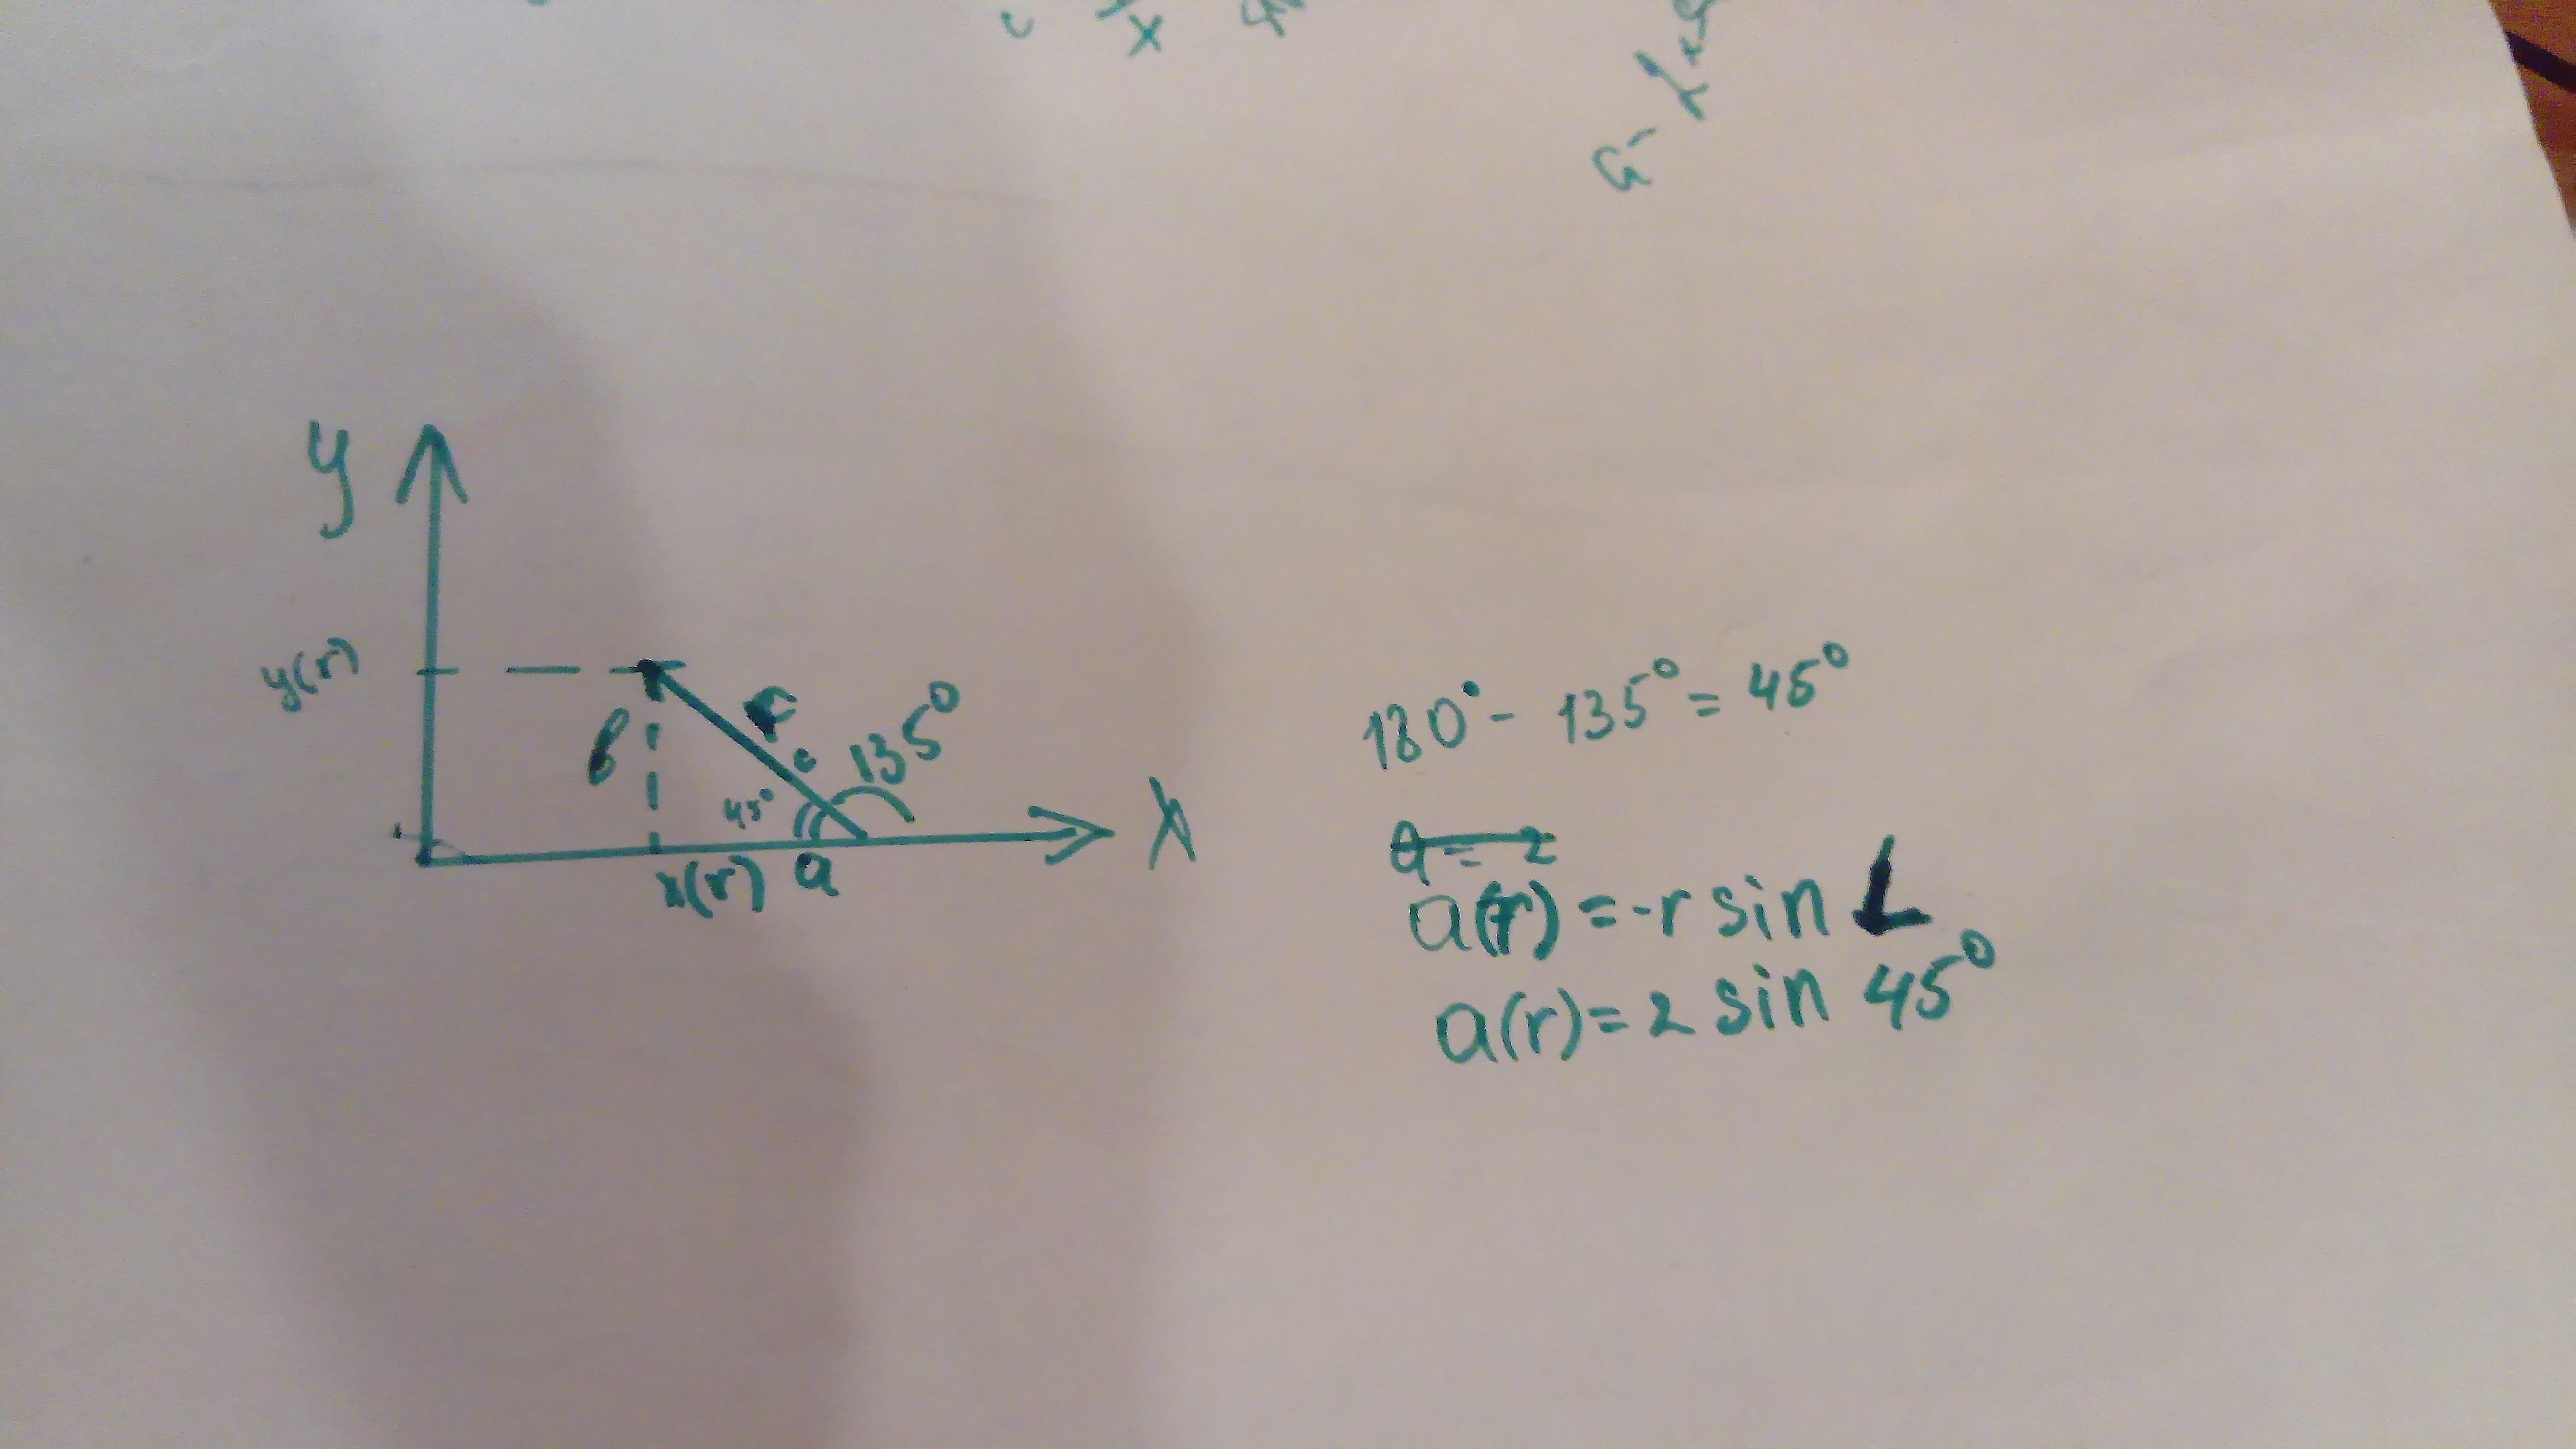 y
y(r)
b
r
c
135°
45°
x(r) a
X
180° - 135° = 45°
a = 2
a(r) = -r sin L
a(r) = 2 sin 45°